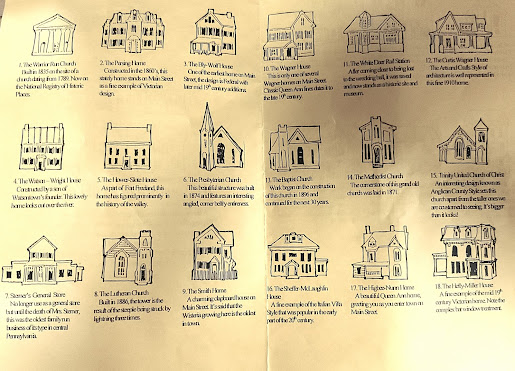 1. The Warrior Run Church
Built in 1835 on the site of a
church dating from 1789. Now on
the National Registry of Historic
Places.
2. The Parsing Home
Constructed in the 1860's, this
sturdy home stands on Main Street
as a fine example of Victorian
design.
3. The Ply-Wolf House
One of the earliest home on Main
Street, the design is Federal with
later mid 19th century additions.
4. The Watson – Wright House
Constructed by a son of
Watsontown's founder. This lovely
home looks out over the river.
5. The Hower-Slote House
As part of Fort Freeland, this
home has figured prominently in
the history of the valley.
6. The Presbyterian Church
This beautiful structure was built
in 1874 and features an interesting
angled, corner belfry entrance.
7. Sterner's General Store
No longer use as a general store
but until the death of Mrs. Sterner,
this was the oldest family run
business of its type in central
Pennsylvania.
8. The Lutheran Church
Built in 1886, the tower is the
result of the steeple being struck by
lightning three times.
9. The Smith Home
A charming clapboard house on
Main Street. It's said that the
Wisteria growing here is the oldest
in town.
10. The Wagner Home
This is only one of several
Wagner homes on Main Street.
Classic Queen Ann lines dates it to
the late 19th century.
11. The White Deer Rail Station
After coming close to being lost
to the wrecking ball, it was saved
and now stands as a historic site and
museum.
12. The Curtis Wagner House
The Arts and Crafts Style of
architecture is well represented in
this fine 1910 home.
13. The Baptist Church
Work began on the construction
of this church in 1896 and
continued for the next 30 years.
14. The Methodist Church
The cornerstone of this grand old
church was laid in 1871.
15. Trinity United Church of Christ
An interesting design known as
Anglican County Style sets this
church apart from the taller ones we
are accustomed to seeing. It's bigger
than it looks!
16. The Sheffer-McLaughlin
House
A fine example of the Italian Villa
Style that was popular in the early
part of the 20th century.
17. The Nunn House
A beautiful Queen Ann house,
greeting you as you enter town on
Main Street.
18. The Miller House
A fine example of the mid 19th
century Victorian home. Note the
complex bar window treatment.